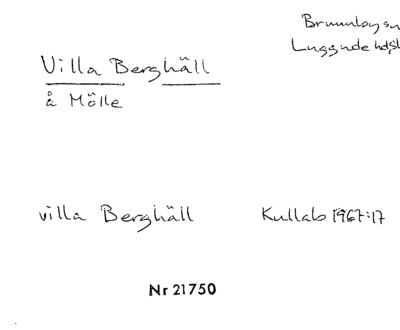 Brunnby sn
Luggude hd, Sk
Villa Berghäll
å Mölle
villa Berghäll Kullab 1967:17
Nr 21750